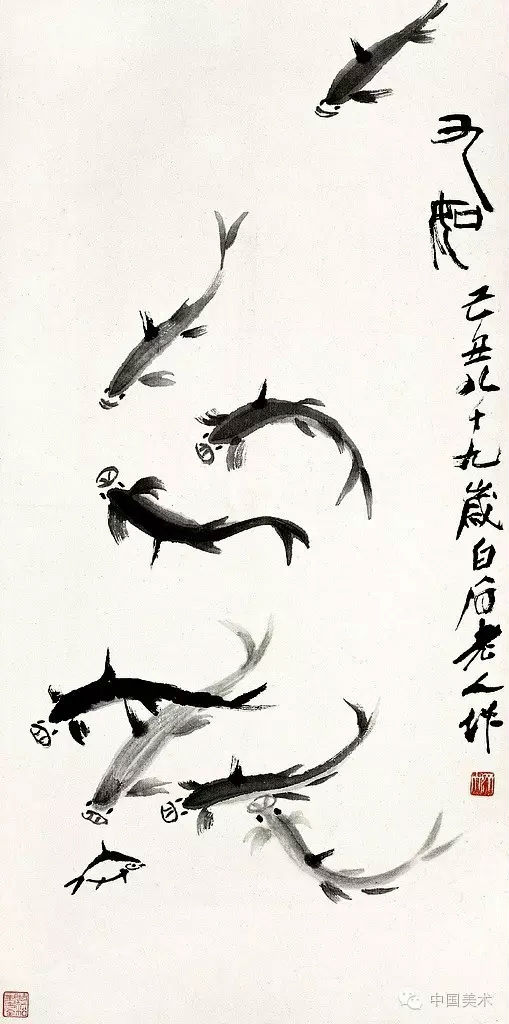 九如
己丑八十九歲白石老人作
中国美术